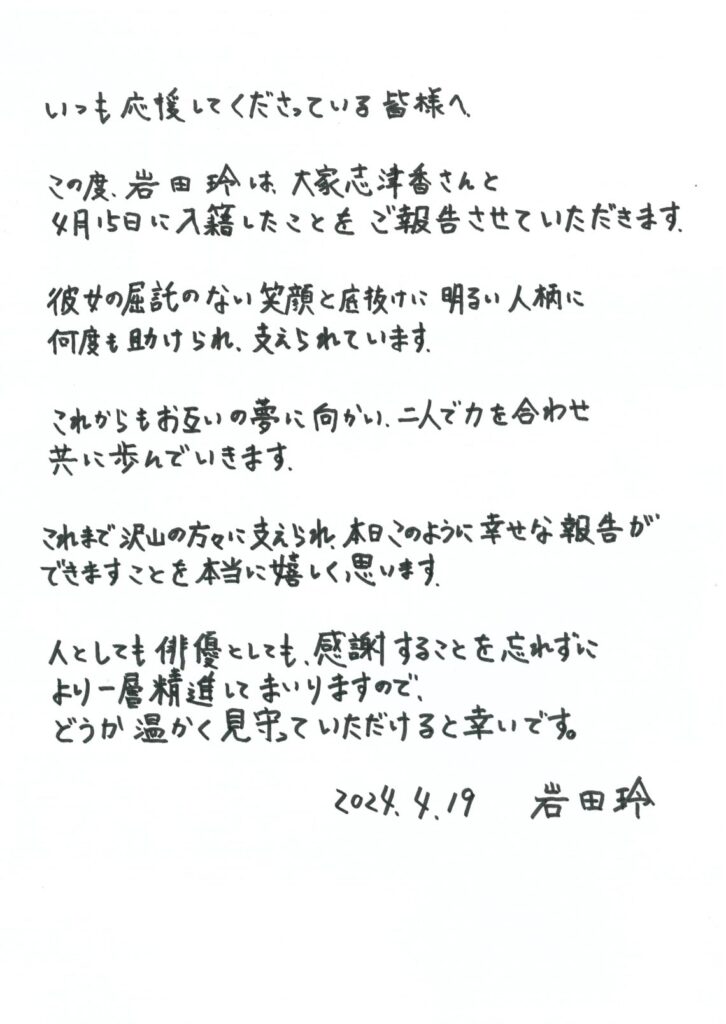 いつも応援してくださっている皆様へ
この度、岩田玲は、大家志津香さんと
4月15日に入籍したことをご報告させていただきます。
彼女の屈託のない笑顔と底抜けに明るい人柄に
何度も助けられ、支えられています。
これからもお互いの夢に向かい、二人で力を合わせ
共に歩んでいきます。
これまで沢山の方々に支えられ、本日このように幸せな報告が
できますことを本当に嬉しく思います。
人としても俳優としても、感謝することを忘れずに
より一層精進してまいりますので、
どうか温かく見守っていただけると幸いです。
2024.4.19 岩田玲